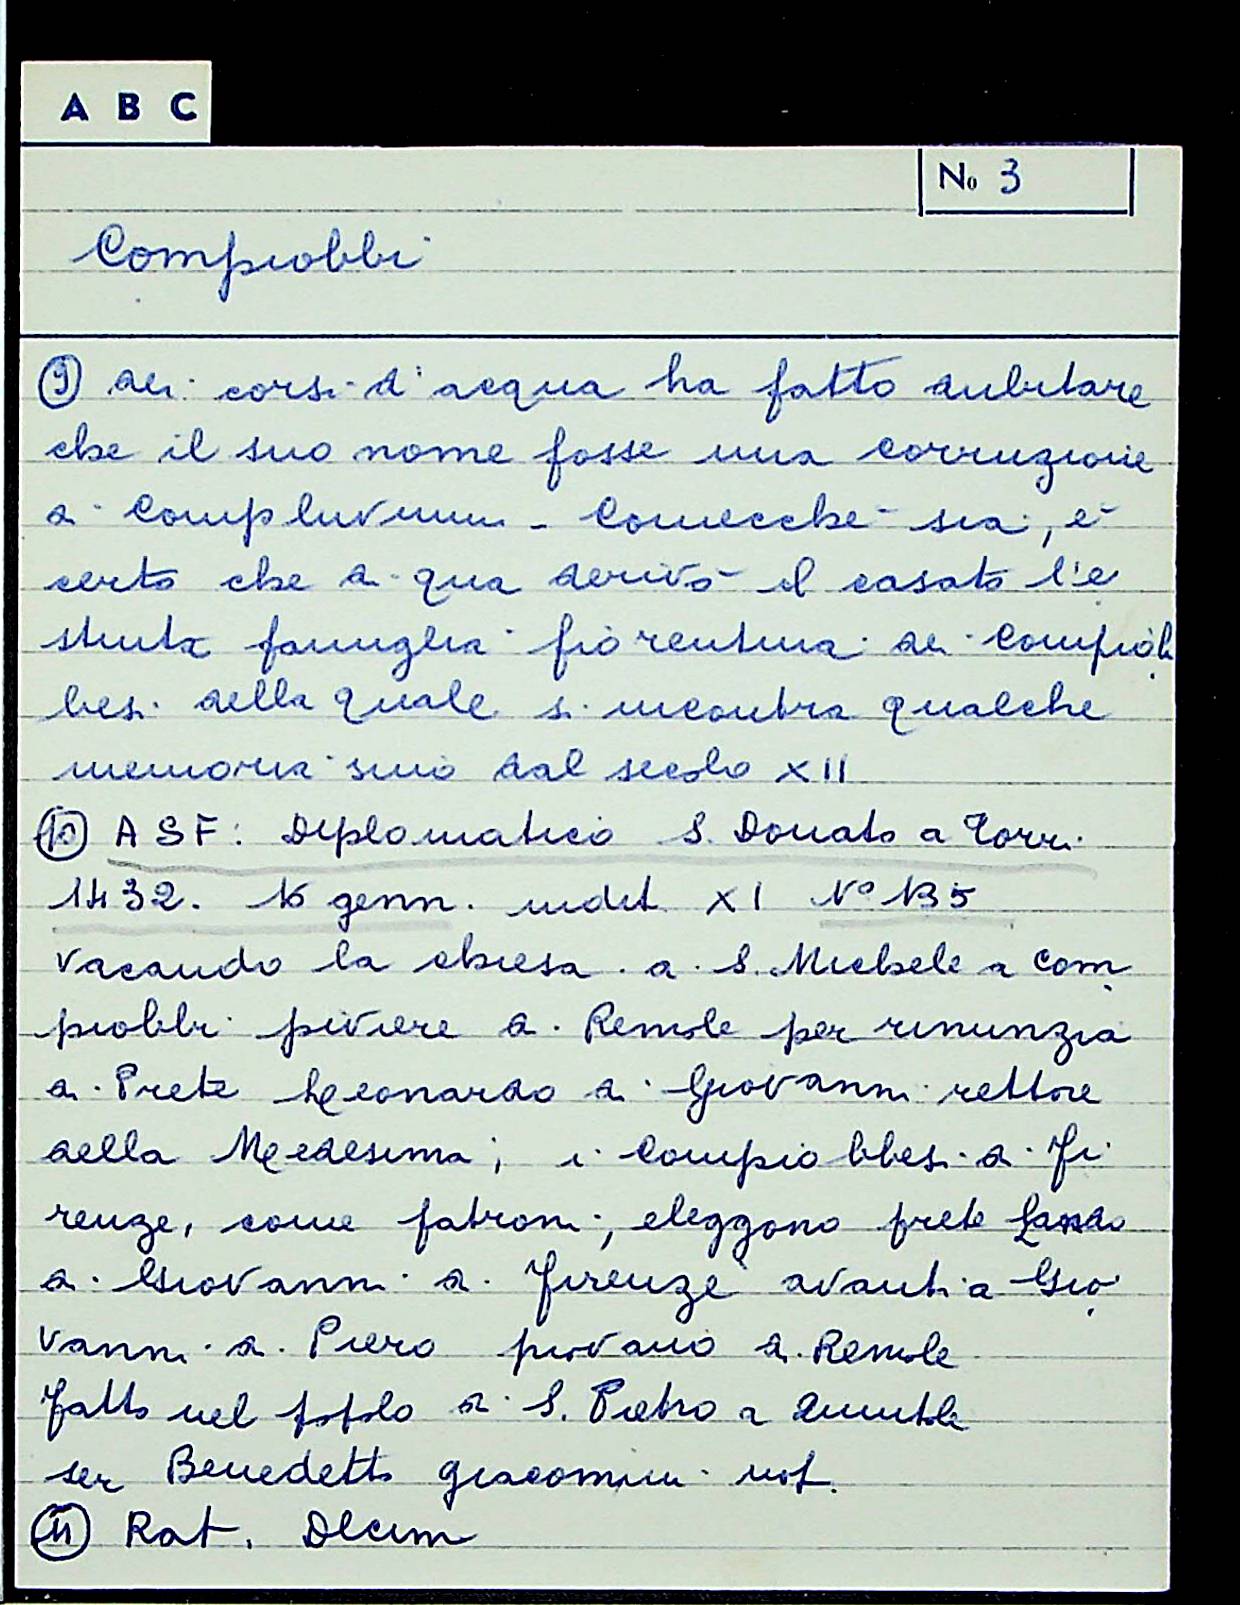 A B C
No 3
Compiobbi
⑨ dei corsi d'acqua ha fatto dubitare
che il suo nome fosse una corruzione
di Compluvium - Comecche sia, è
certo che di qua derivò il casato l'e
stinta famiglia fiorentina dei Compiob
besi della quale si incontra qualche
memoria sino dal secolo XII
⑩ ASF: Diplomatico S. Donato a Torri
1432. 16 genn. indit XI N° 135
vacando la chiesa di S. Michele a Com
piobbi piviere di Remole per rinunzia
di Prete Leonardo di Giovanni rettore
della Medesima; i Compiobbesi di Fi
renze, come patroni, eleggono prete
di Giovanni di Firenze avanti a Gio
vanni di Piero piovano di Remole
fatto nel popolo di S. Pietro a Quintole
ser Benedetto Giacomini not.
⑪ Rat. Decim